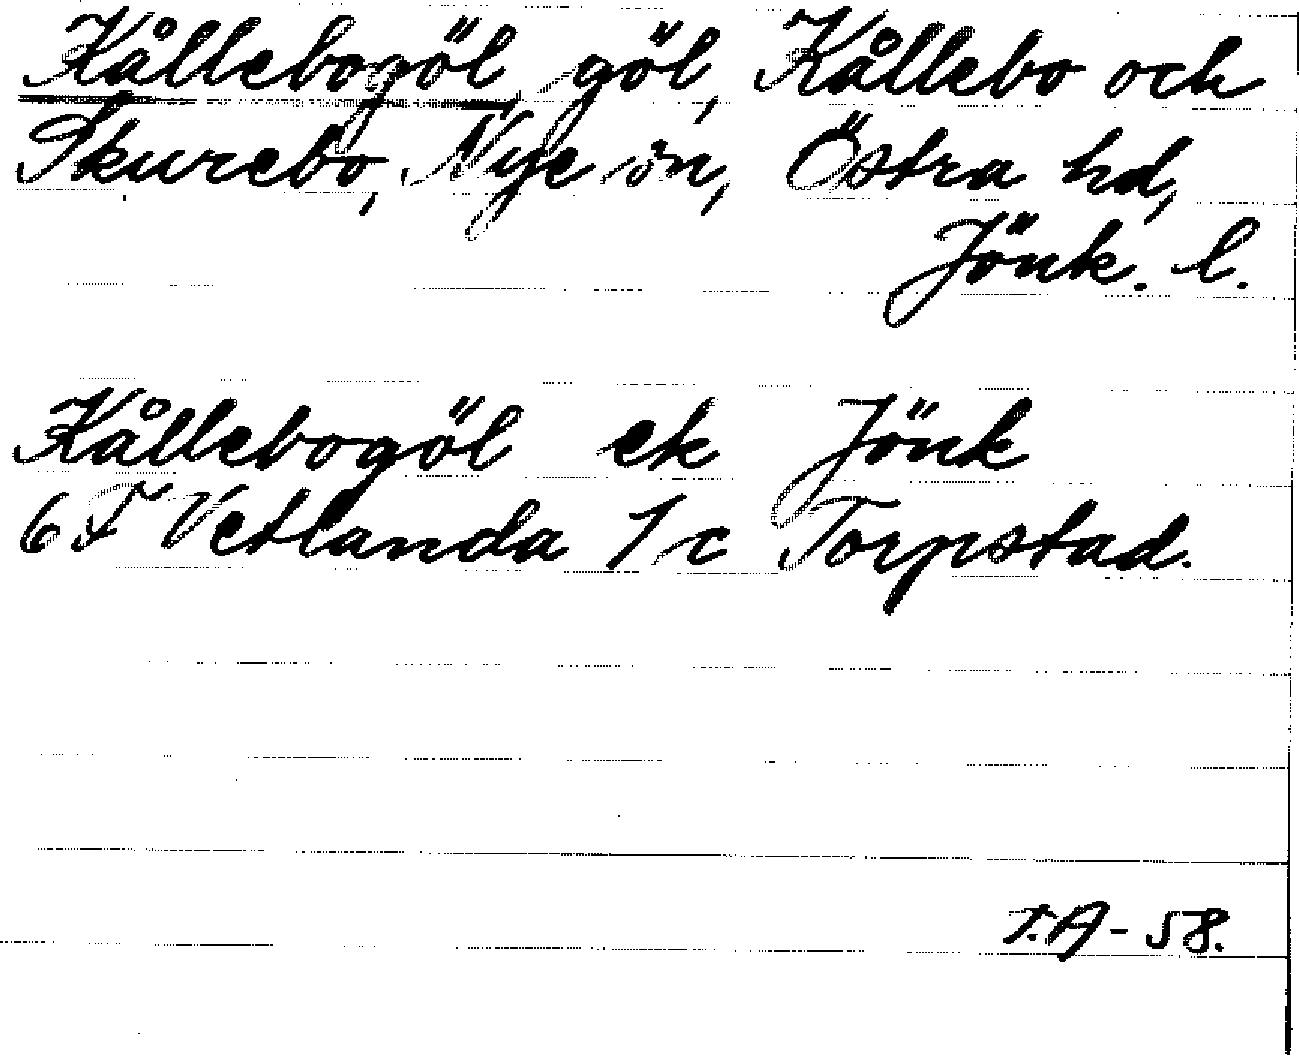 Kållebogöl göl, Kållebo och
Skurebo, Nye sn, Östra hd,
Jönk. l.
Kållebogöl ek Jönk
6F Vetlanda 1c Torpstad.
T.A-58.